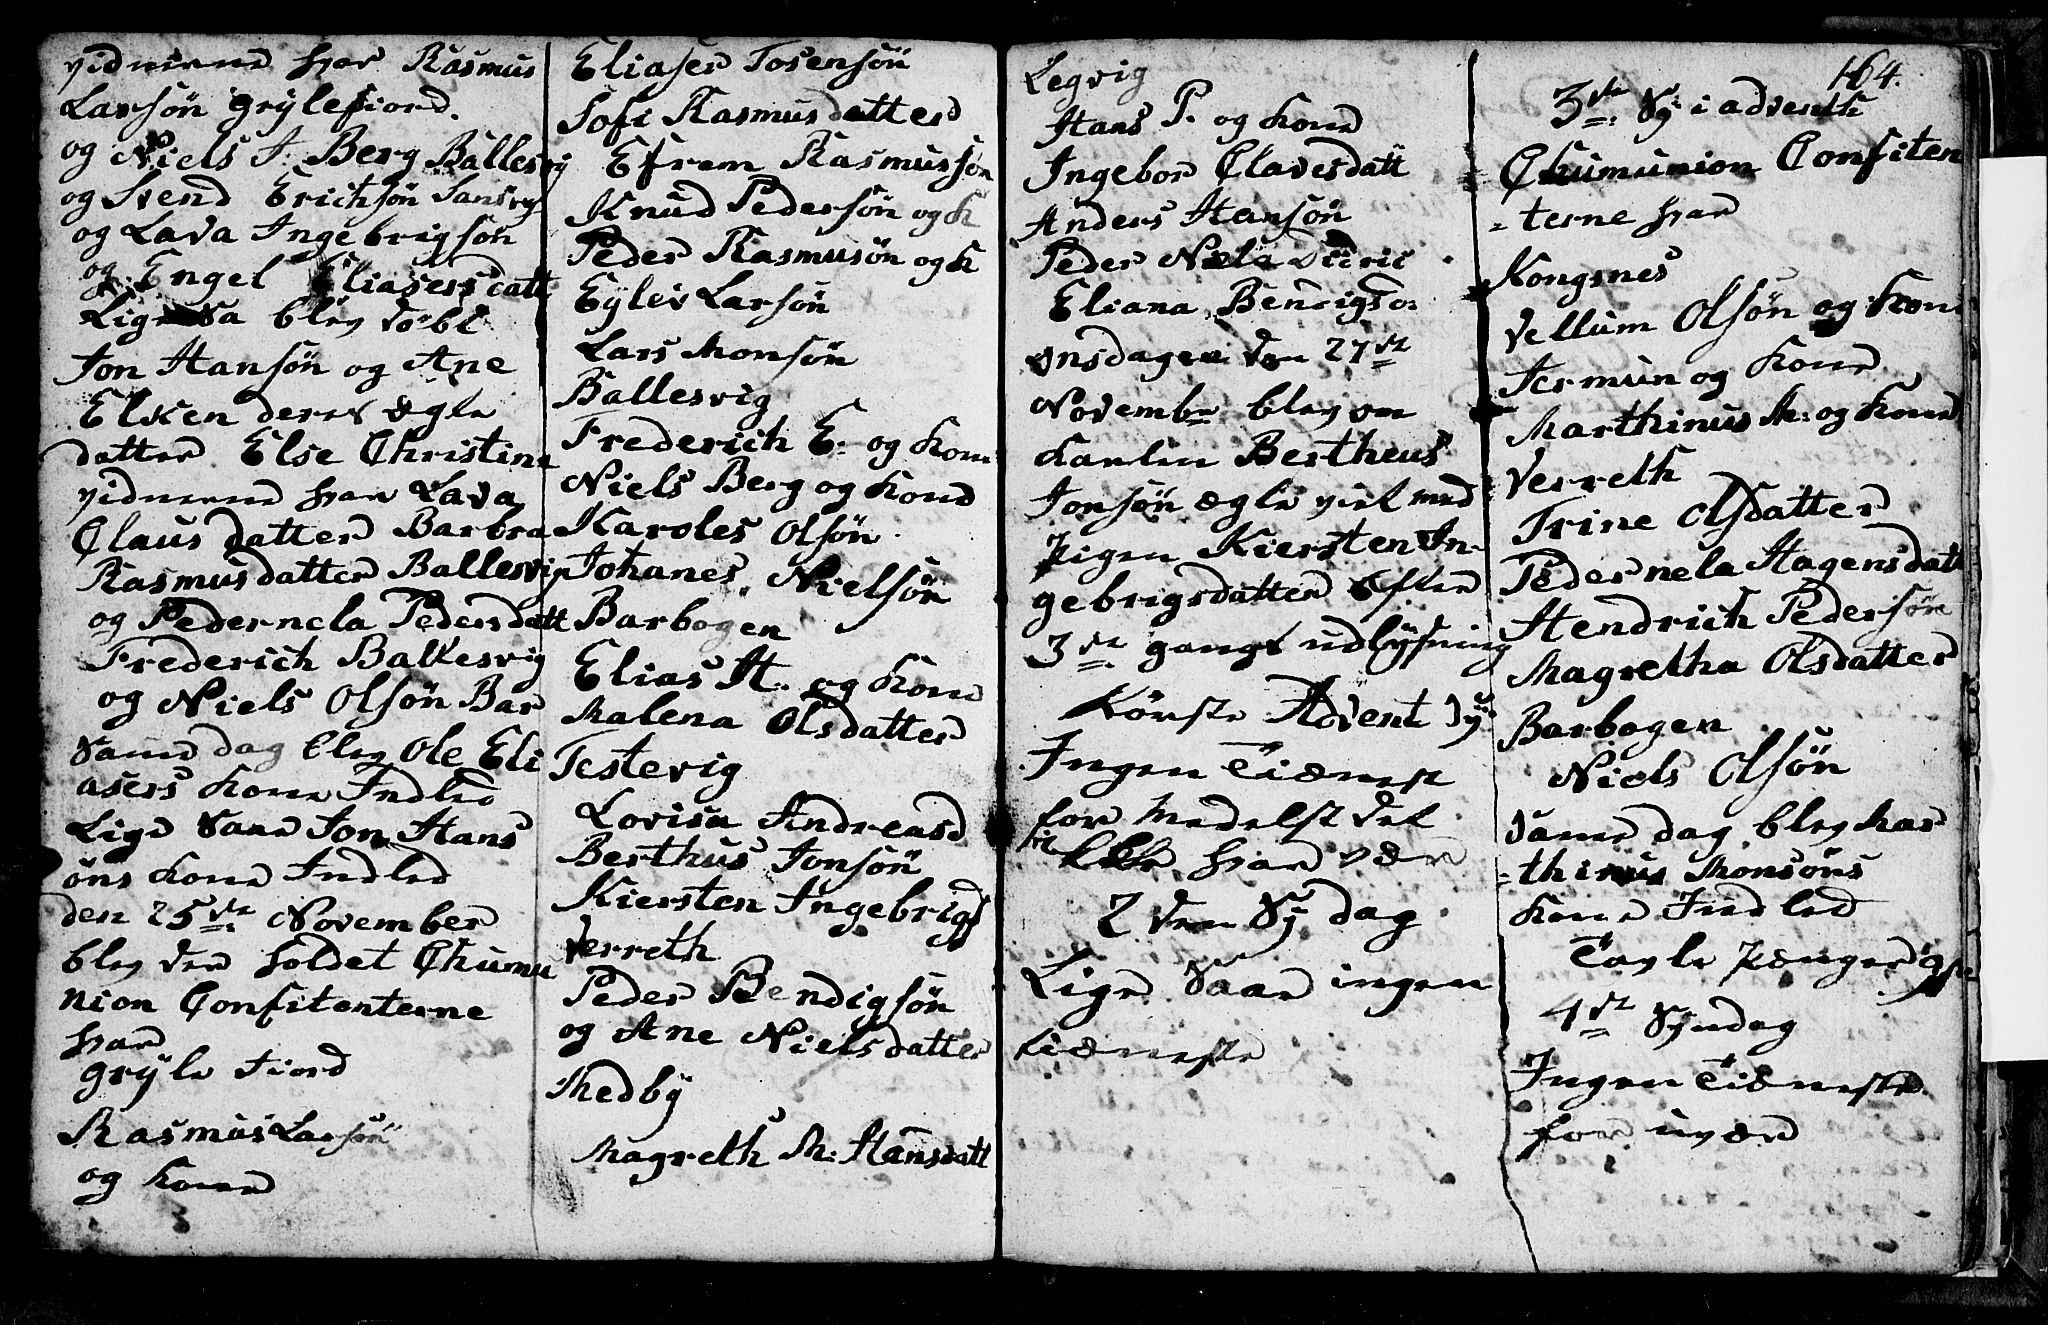 vidnerne hvar Rasmus
Larsøn Grylefiord.
og Niels J: Berg Ballesvig
og Svend Erichsøn Sansvg
og Lava Ingebrigsøn
og Engel Eliasersdatt
Ligesaa blev Døbt
Jon Hansøn og Ane
Elsken deres ægte
datter Else Christina
vidnerne hvar Lava
Claus datter Barbra
Rasmusdatter Ballesvig
og Pedernela Pedersdatt
Frederich Ballesvig
og Niels Olsøn Bar
Same dag blev Ole Eli
asers kone Indled
Lige Saae Jon Hans
øns kone Indled
den 25de November
blev der holdet Chumu
nion Confitenterne
hvar
Gryle Fiord
Rasmus Larsøn
og kone
Eliaser Tosensøn
Sofi Rasmusdatter
Efram Rasmussøn
Knud Pedersøn og K
Peder Rasmusøn og K
Eylev Larsøn
Lars Monsøn
Ballesvig
Frederich E: og kone
Niels Berg og kone
Karoles Olsøn
Johanes Nielsøn
Barbogen
Elias H. og kone
Malena Olsdatter
Testevig
Lovisa Andreasd
Berthus Jonsøn
Kiersten Ingebrigs
Verreth
Peder Bendigsøn
og Ane Nielsdatter
Medby
Magreth M: Hansdatt
Legvig
Hans P. og kone
Ingebor Clavesdatt
Anders Hansøn
Peder Niels
Eliana Bendigsd
onsdagen den 27de
Novembr blev
Karlen Bertheus
Jonsøn ægte viet med
Pigen Kiersten In-
gebrigsdatter Efter
3de gangs udlysning
Første Advent Sy
Ingen Tiæneste
for medelst det
hvar vær
2den Sy dag
Lige Saae ingen
tiæneste
164.
3de Sy: i adventh
Chumunion Confiten
-terne hvar
Kongsnes
Vellum Olsøn og kone
Jermun og kone
Marthinus M: og kone
Verreth
Trine Olsdatter
Pedernela Hagensdatt
Hendrich Pedersøn
Magretha Olsdatter
Barbogen
Niels Olsøn
Same dag blev Mar
-thinus Monsøns
kone Indled
Tavle Penger
4de Syndag
Ingen Tiæneste
for uvær